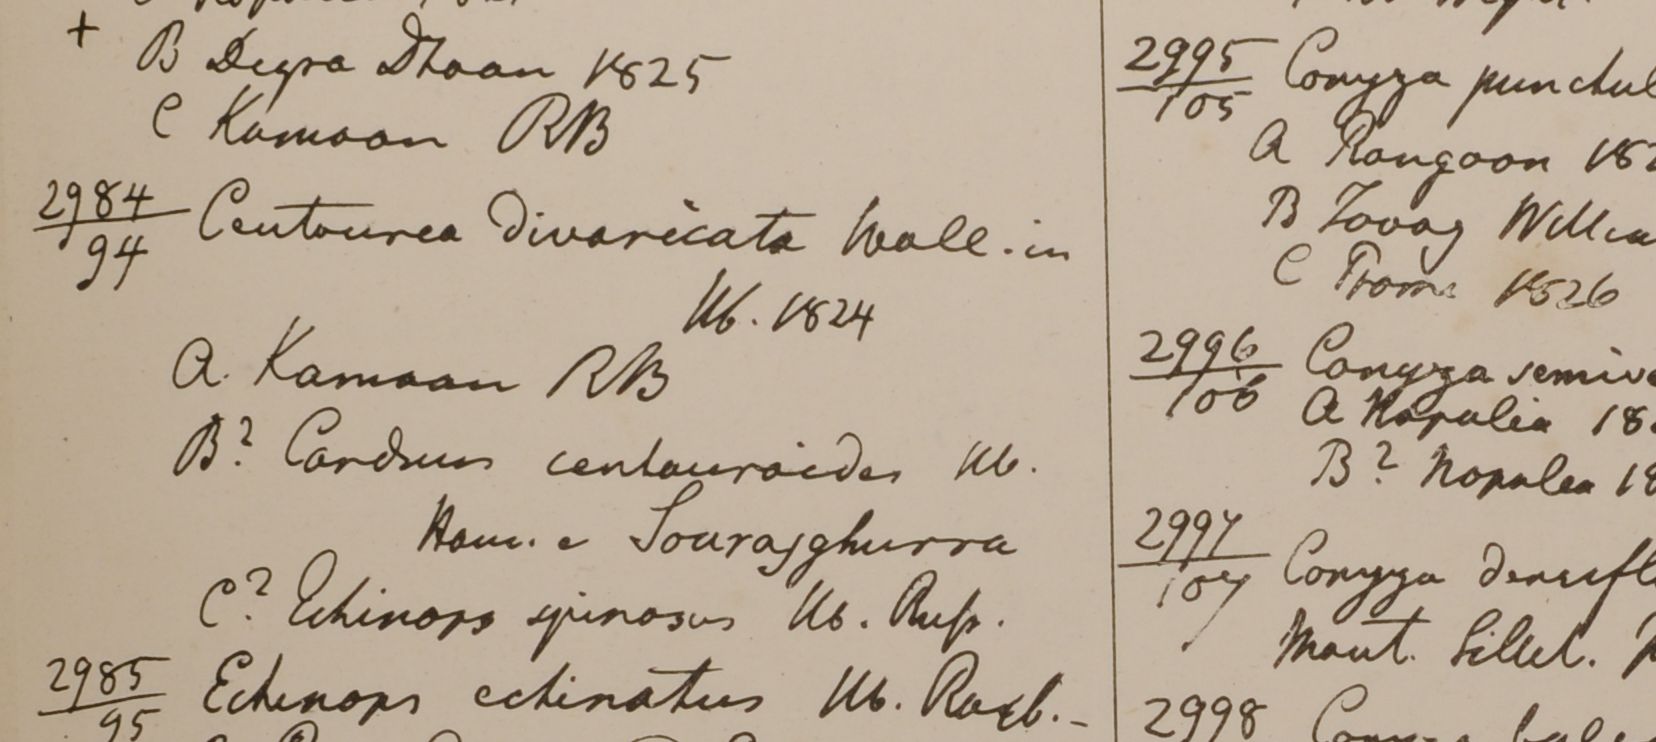 + B Degra Dhoon 1825
C Kamaon RB
2984/94 Centaurea divaricata Wall. in
Hb. 1824
A. Kamaon RB
B? Carduus centauroides Hb.
Ham. e Sourajghurra
C? Echinops spinosus Hb. Russ.
2985/95 Echinops echinatus Hb. Roxb. -
2995/105 Conyza punctul
A Rangoon 182
B Tavoy William
C Prome 1826
2996/106 Conyza semive
A Napalia 18
B? Napalea 18
2997/107 Conyza densifl
Mont. Sillet.
2998